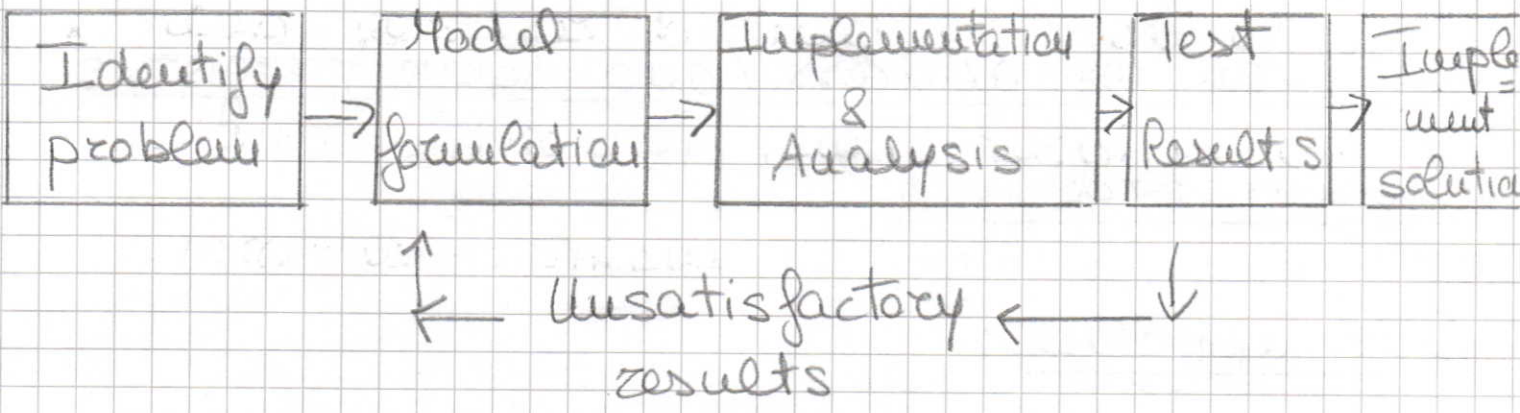 Identify
problem
Model
formulation
Implementation
&
Analysis
Test
Results
Imple=
ment
solutio
Unsatisfactory
results